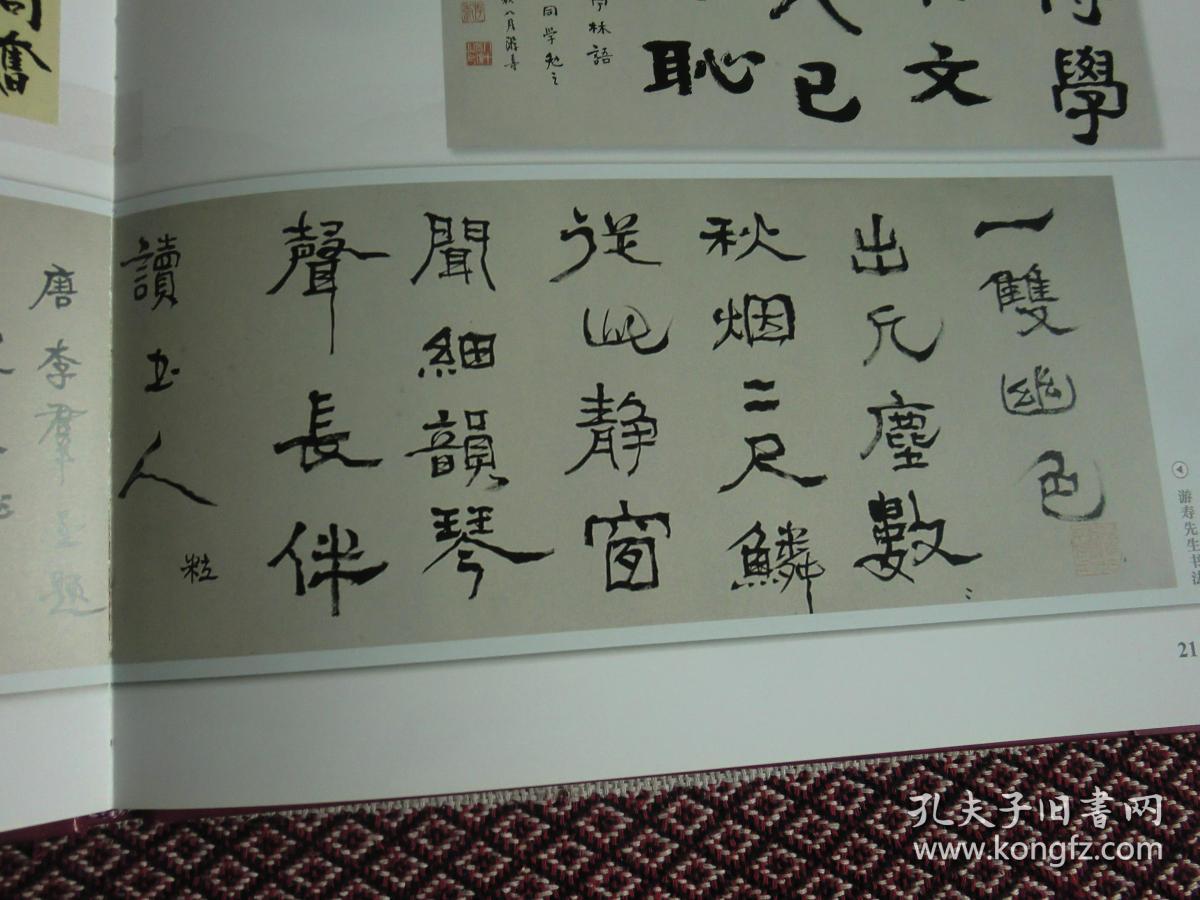 學
文
已
恥
林語
同學勉之
八月游壽
奮
一雙幽色
出凡塵數
秋烟二尺鱗
從此静窗
聞細韻琴
聲長伴
讀书人 粒
唐李羣玉題
游寿先生书法
21
孔夫子旧書网
www.kongfz.com